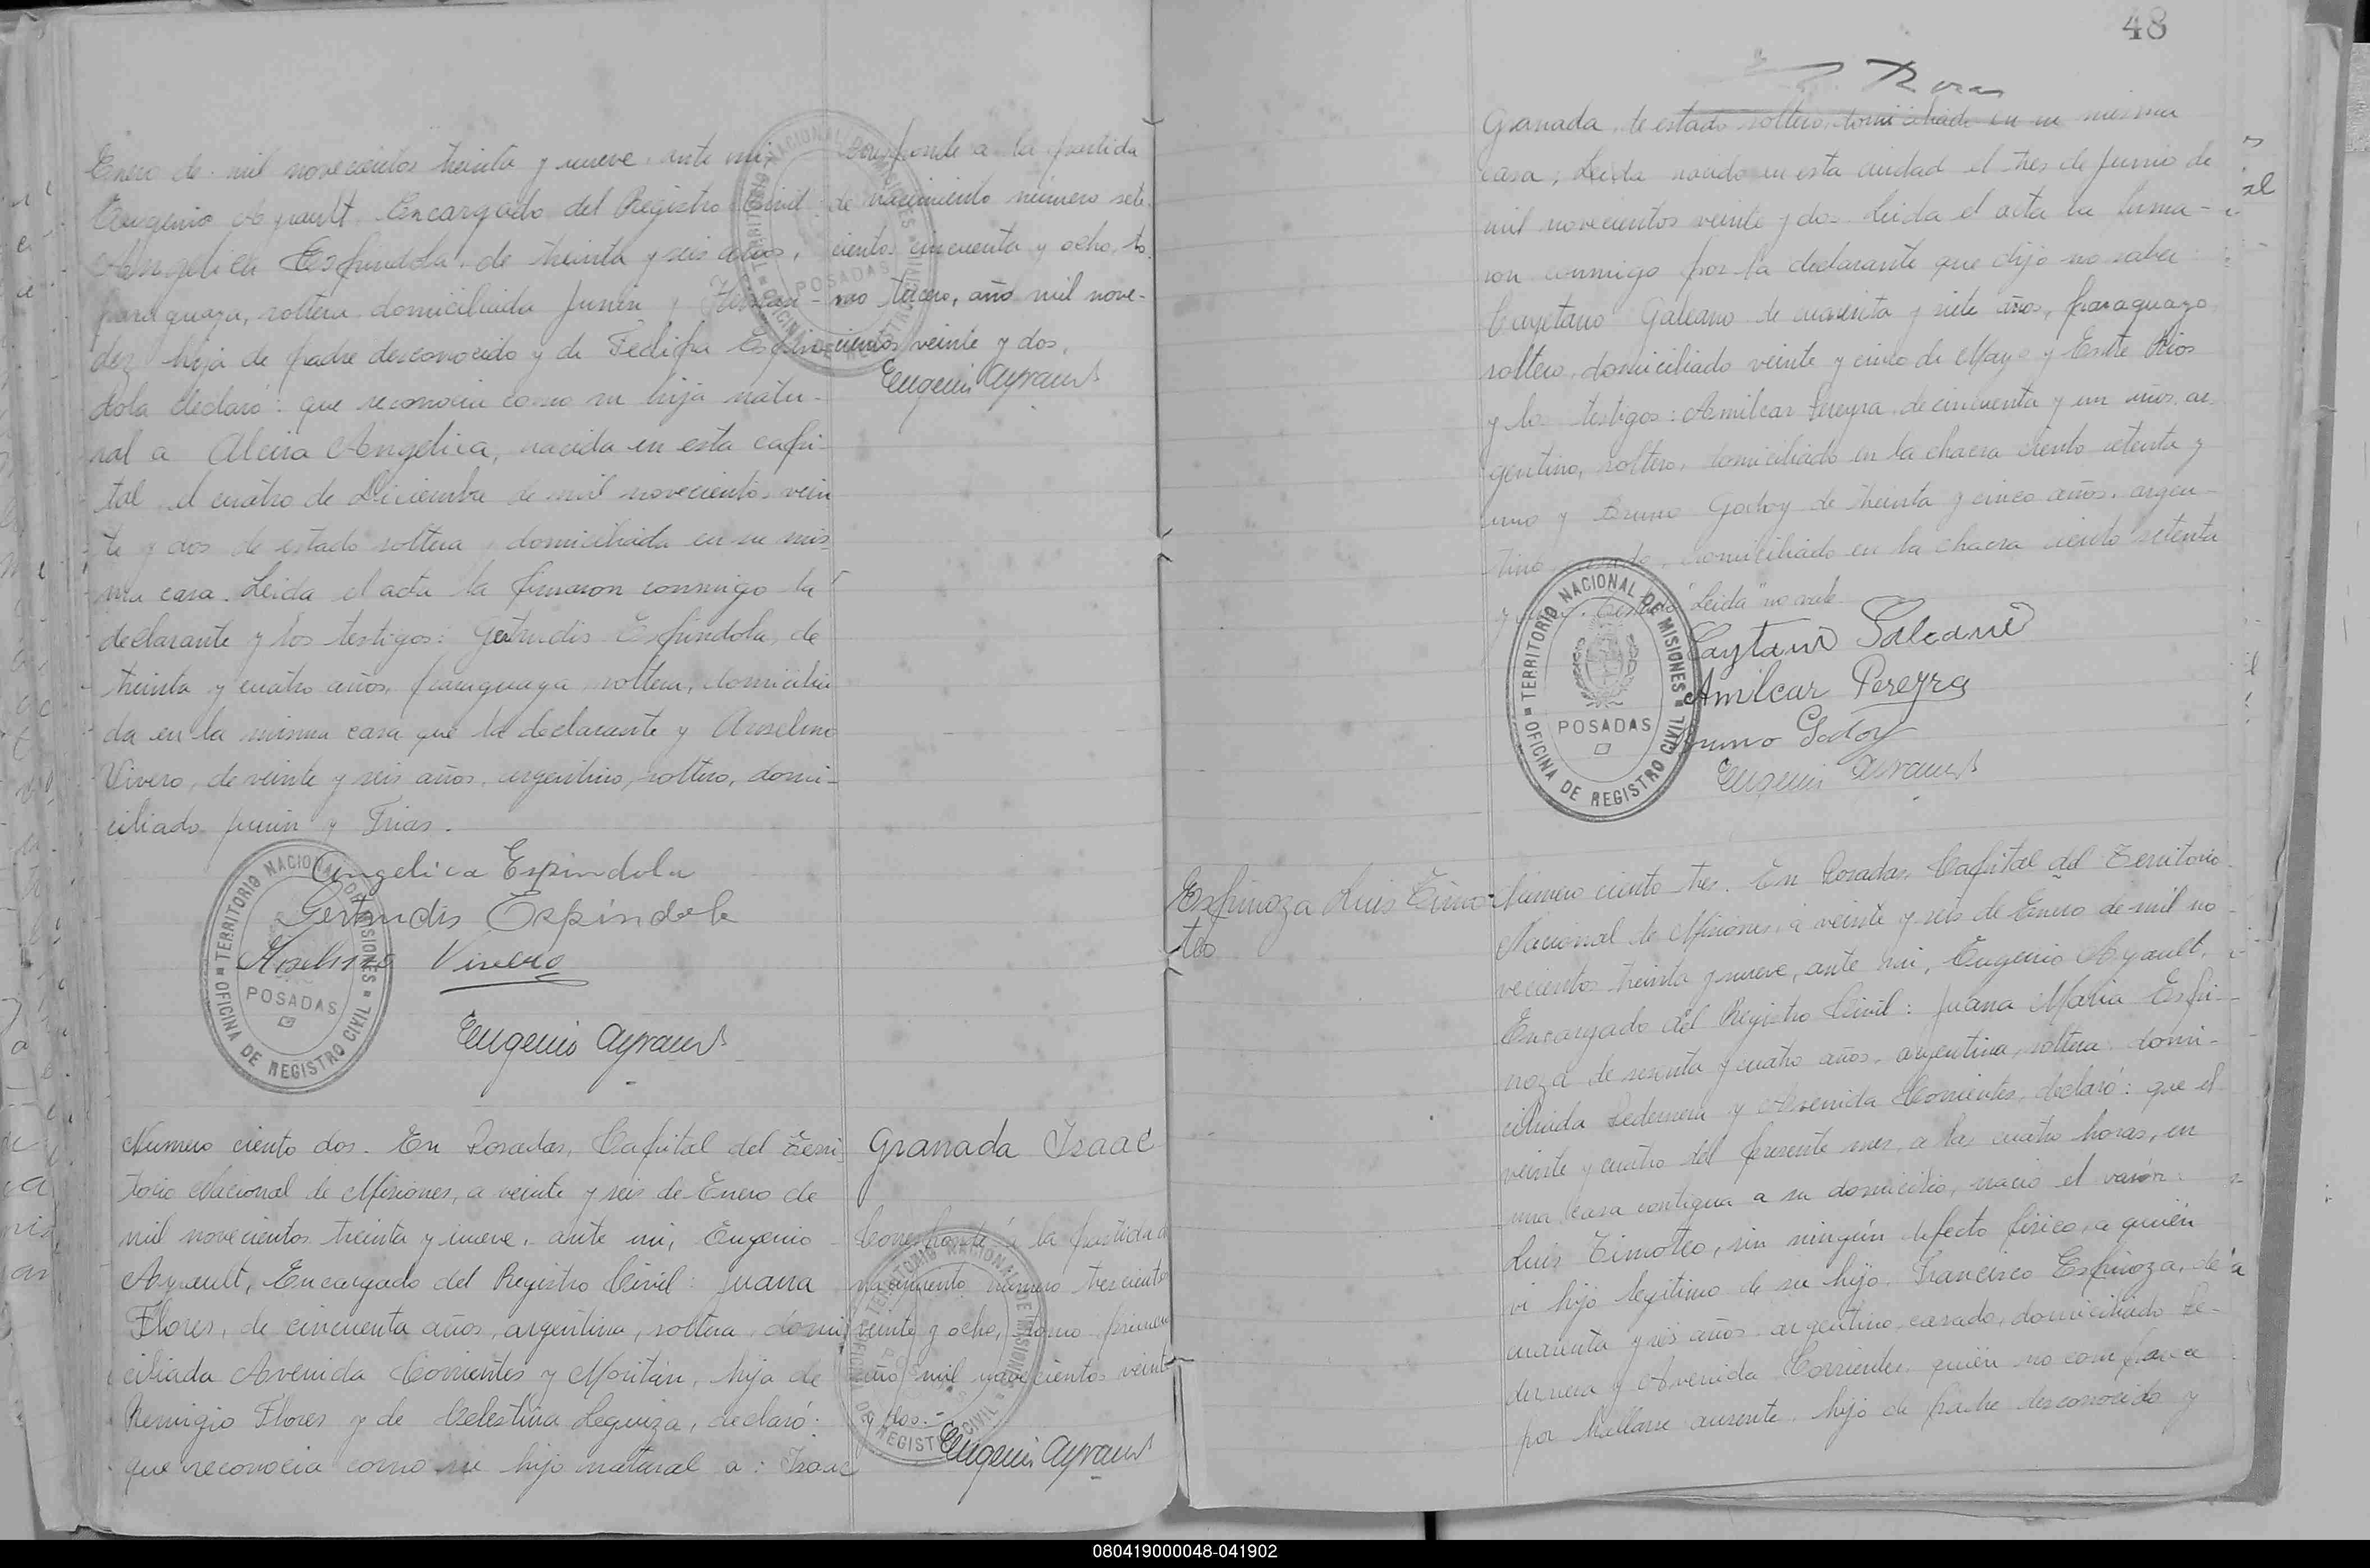 Enero de mil novecientos treinta y nueve, ante mi,
Eugenio Ayrault Encargado del Registro Civil
Angelica Espindola, de treinta y seis años,
paraguaya, soltera domiciliada Junin y
dez hija de padre desconocido y de Espin-
dola declaró: que reconocia como su hija natu-
ral a Alcira Angelica, nacida en esta capi-
tal, el cuatro de Diciembre de mil novecientos vein
te y dos de estado soltera y domiciliada en su mis
ma casa. Leida el acta la firmaron conmigo la
declarante y los testigos: Gertrudis Espindola, de
treinta y cuatro años, paraguaya soltera, domicilia
da en la misma casa que la declarante y Anselmo
Vivero, de veinte y seis años, argentino, soltero, domi-
ciliado Junin y Frias.
Angelica Espindola
Gertrudis Espindola
Anselmo Vivero
Eugenio Ayrault
Corresponde a la partida
de nacimiento número sete
cientos cincuenta y ocho, to
mo tercero, año mil nove-
cientos veinte y dos.
Eugenio Ayrault
TERRITORIO NACIONAL DE MISIONES
POSADAS
OFICINA DE REGISTRO CIVIL
Numero ciento dos. En Posadas, Capital del Terri
torio Nacional de Misiones, a veinte y seis de Enero de
mil novecientos treinta y nueve, ante mi, Eugenio
Ayrault, Encargado del Registro Civil: Juana
Flores, de cincuenta años, argentina, soltera, domi
ciliada Avenida Corrientes y Moritán, hija de
Remigio Flores y de Celestina Leguiza, declaró:
que reconocia como su hijo natural a: Isaac
Granada Isaac
Corresponde á la partida d
nacimiento número trescientos
veinte y ocho, tomo primero
año mil novecientos veinte
y dos.-
Eugenio Ayrault
TERRITORIO NACIONAL DE MISIONES
POSADAS
OFICINA DE REGISTRO CIVIL
48
Granada, de estado soltero, domiciliado en su misma
casa, Leida nacido en esta ciudad el tres de Junio de
mil novecientos veinte y dos. Leida el acta la firma-
ron conmigo por la declarante que dijo no saber:
Cayetano Galeano de cuarenta y siete años, paraguayo
soltero, domiciliado veinte y cinco de Mayo y Entre Rios
y los testigos: Amilcar Pereyra de cincuenta y un años, ar-
gentino, soltero, domiciliado en la chacra ciento setenta y
uno y Bruno Godoy de treinta y cinco años, argen-
tino domiciliado en la chacra ciento setenta
y "Leida" no vale
Caytano Galeano
Amilcar Pereyra
Bruno Godoy
Eugenio Ayrault
TERRITORIO NACIONAL DE MISIONES
POSADAS
OFICINA DE REGISTRO CIVIL
Espinoza Luis Timo-
teo
Numero ciento tres. En Posadas, Capital del Territorio
Nacional de Misiones, a veinte y seis de Enero de mil no
vecientos treinta y nueve, ante mi, Eugenio Ayrault,
Encargado del Registro Civil: Juana Maria Espi-
noza de sesenta y cuatro años, argentina, soltera domi-
ciliada Pedernera y Avenida Corrientes, declaró: que el
veinte y cuatro del presente mes, a las cuatro horas, en
una casa contigua a su domicilio, nació el varón:
Luis Timoteo, sin ningún defecto fisico, a quién
vi hijo legitimo de su hijo Francisco Espinoza, de
cuarenta y seis años argentino, casado, domiciliado Pe-
dernera y Avenida Corrientes, quién no comparece
por hallarse ausente, hijo de padre desconocido y
080419000048-041902